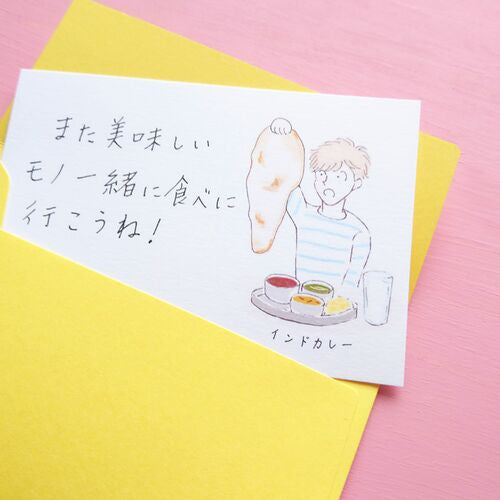 また美味しい
モノ一緒に食べに
行こうね!
インドカレー